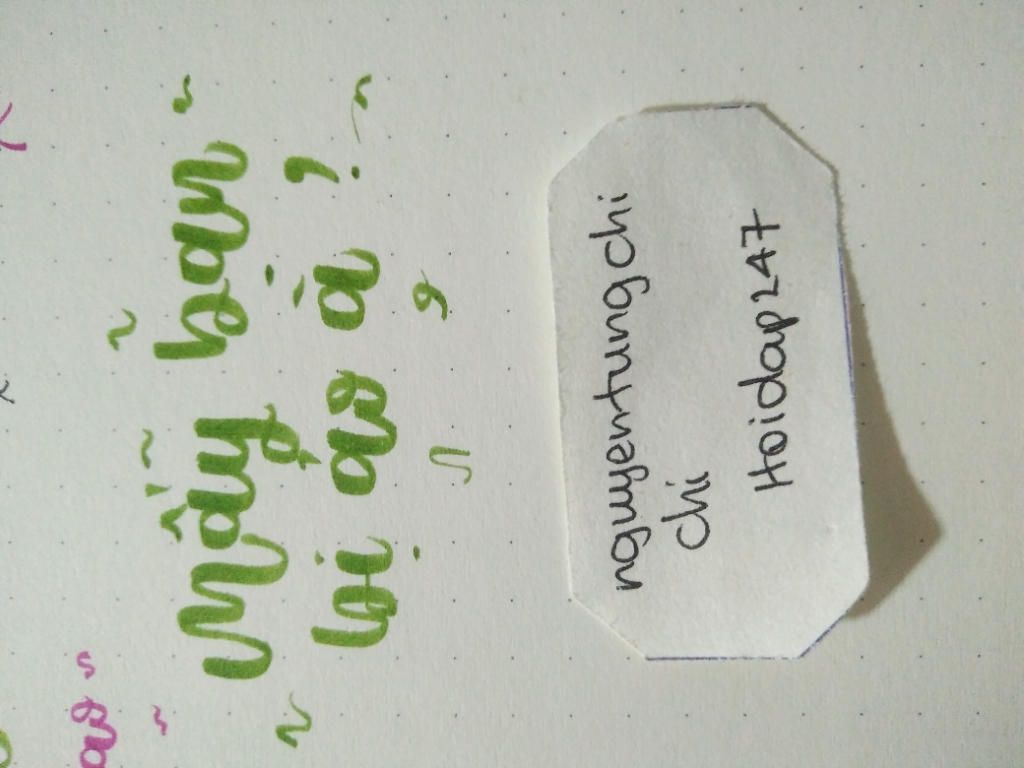 Mấy bạn
bị as à ?
nguyentungchi
chi
Hoidap247